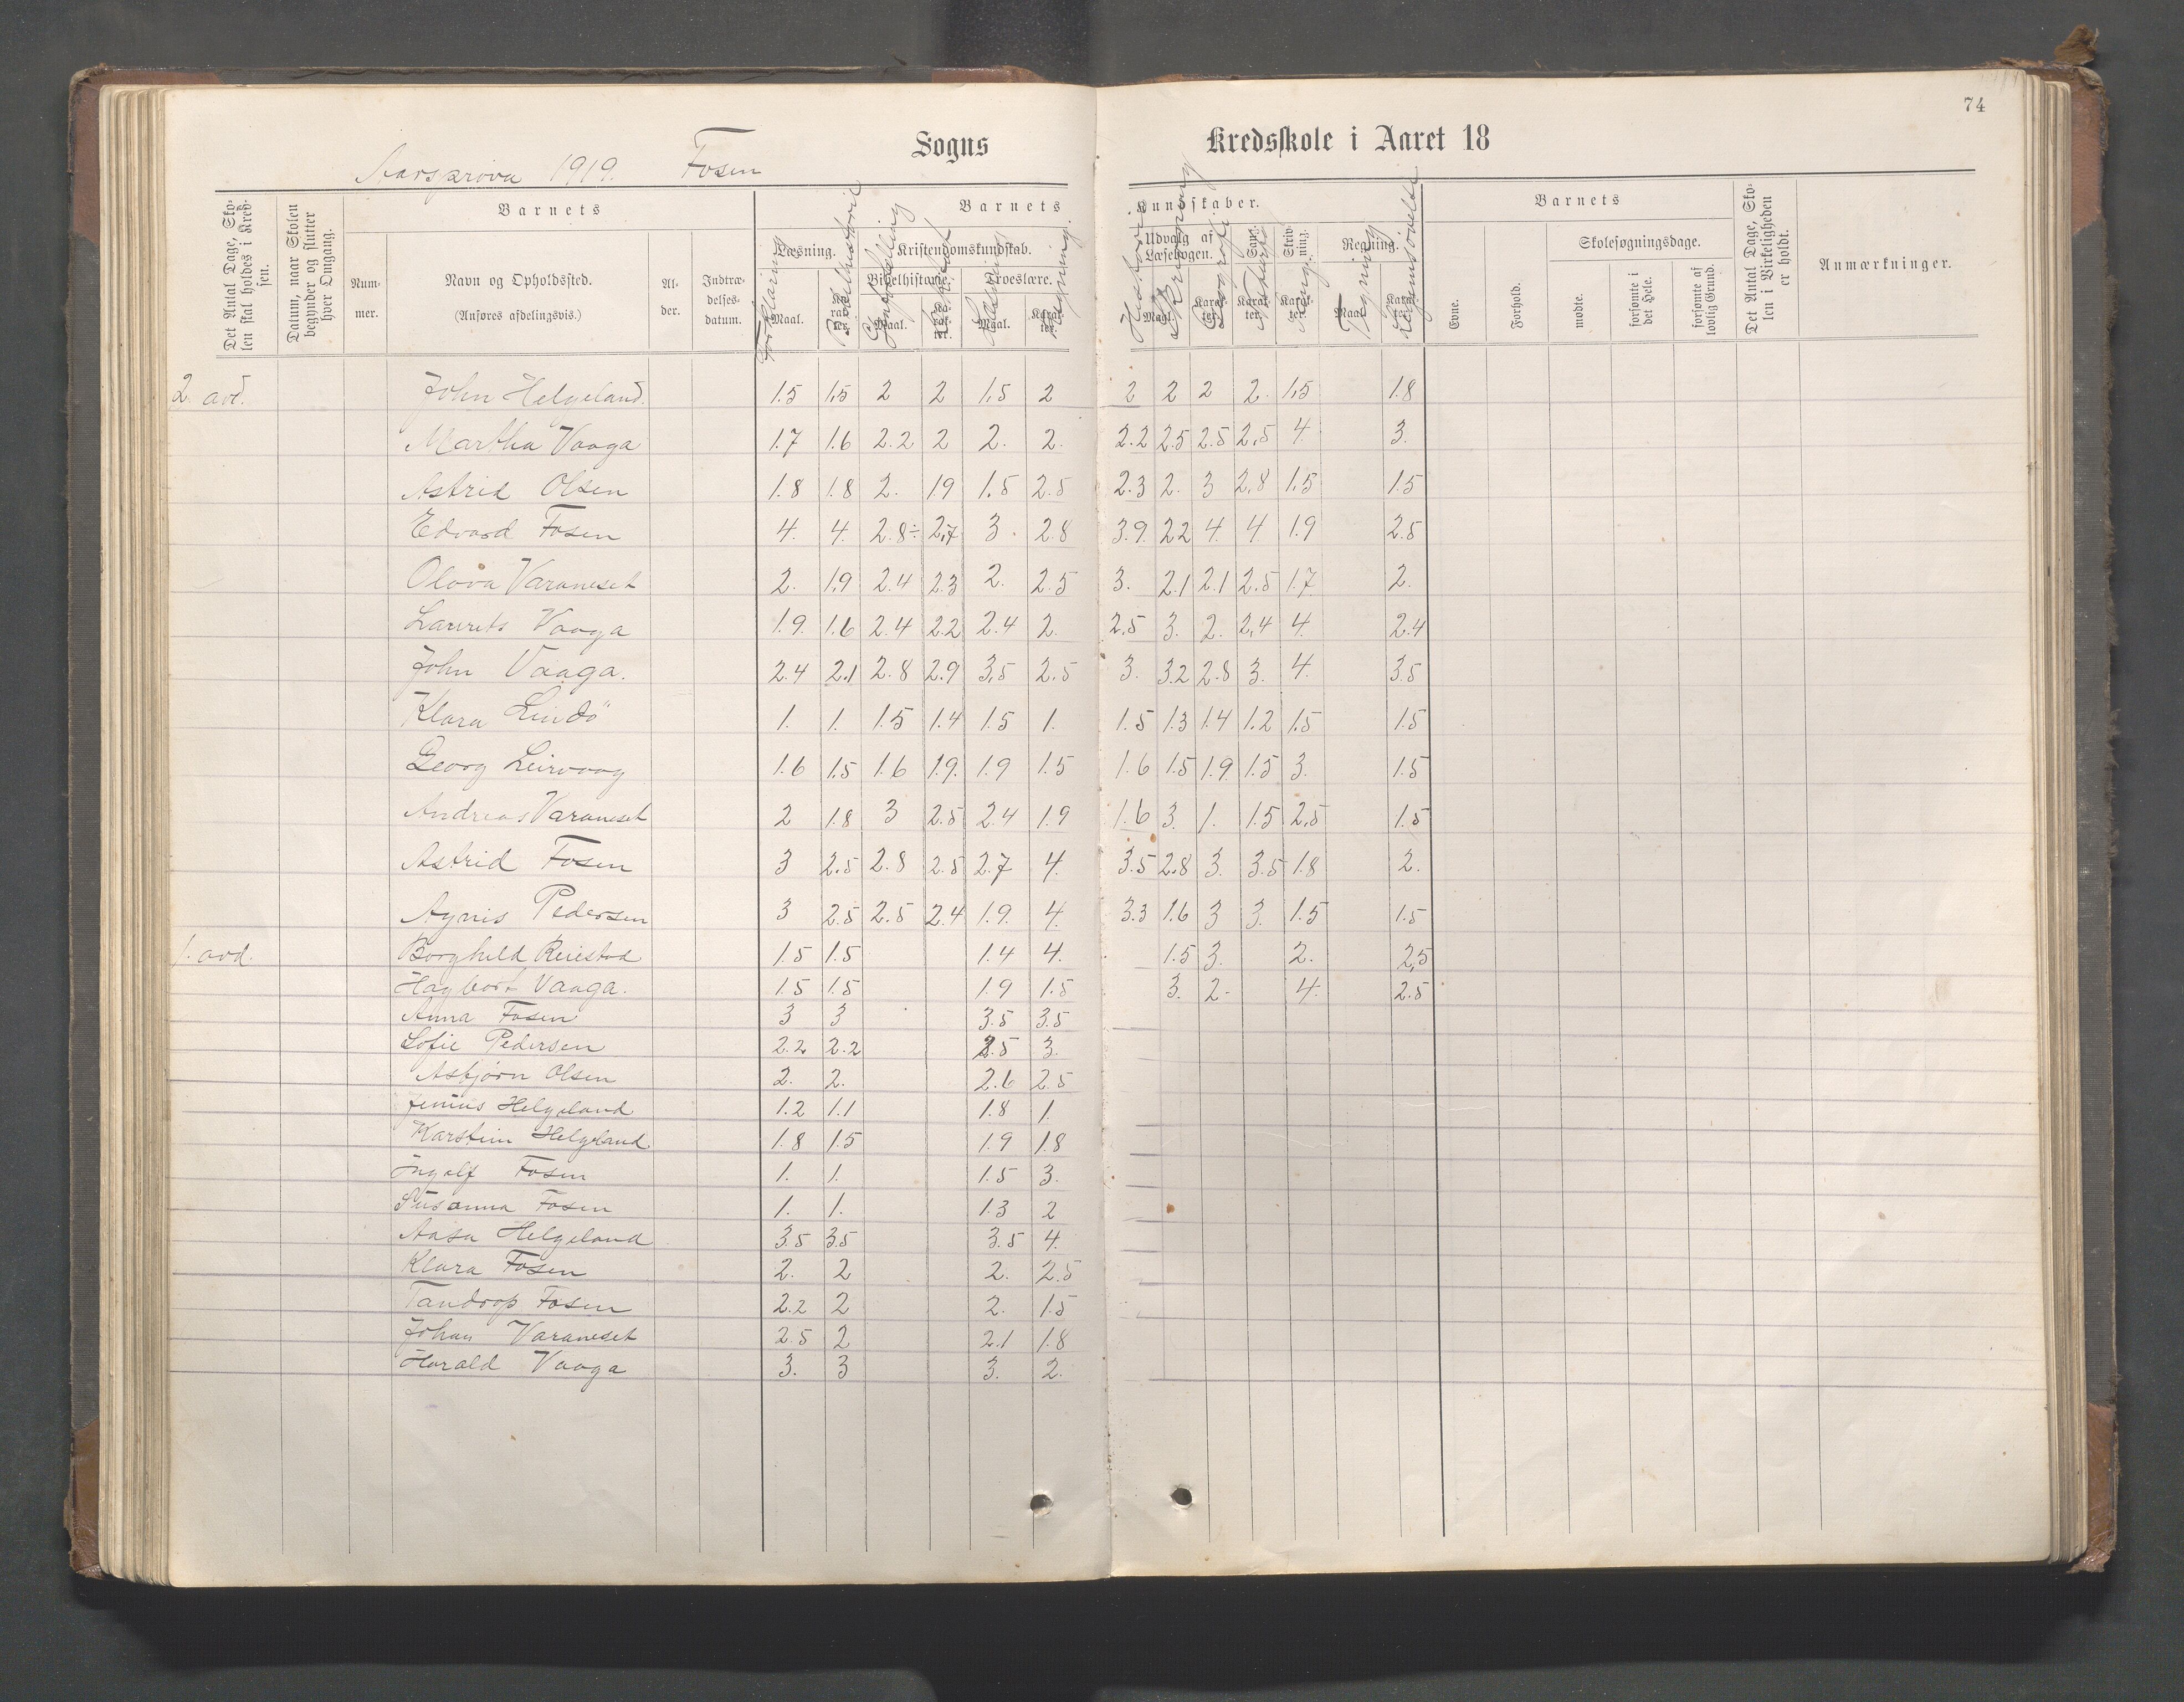 74
Sogns Kredsskole i Aaret 18
Aarsprøva 1919. Fosen
Det Antal Dage, Skolen skal holdes i Kredsen.
Datum, naar Skolen begynder og slutter hver Omgang.
Barnets
Nummer.
Navn og Opholdssted.
(Anføres afdelingsvis.)
Alder.
Indtrædelsesdatum.
Barnets
Læsning.
Kristendomskundskab.
Bibelhistorie.
Troeslære.
Maal.
Karakter.
Maal.
Karakter.
Maal.
Karakter.
Forklaring
Bibelhistorie
Regning.
Kundskaber.
Udvalg af Læsebogen.
Sang.
Skrivning.
Regning.
Maal.
Karakter.
Karakter.
Karakter.
Maal.
Karakter.
Historie
Skrivning
Geografi
Naturk
Sang
Tegning
Legemsøvelse
Barnets
Evne.
Forhold.
Skolesøgningsdage.
mødte.
forsømte i det Hele.
forsømte af lovlig Grund.
Det Antal Dage, Skolen i Virkeligheden er holdt.
Anmærkninger.
2. avd. John Helgeland. 1.5 1.5 2 2 1.5 2 2 2 2 2. 1.5 1.8
Martha Vaaga 1.7 1.6 2.2 2 2. 2. 2.2 2.5 2.5 2.5 4. 3.
Astrid Olsen 1.8 1.8 2. 1.9 1.5 2.5 2.3 2. 3 2.8 1.5 1.5
Edvard Fosen 4. 4. 2.8÷ 2.7 3. 2.8 3.9. 2.2 4. 4 1.9 2.5
Olava Varaneset 2. 1.9 2.4 2.3 2. 2.5 3. 2.1 2.1 2.5 1.7 2.
Laurits Vaaga 1.9. 1.6 2.4 2.2 2.4 2. 2.5 3. 2. 2.4 4. 2.4
John Vaaga. 2.4 2.1 2.8 2.9 3.5 2.5 3. 3.2 2.8 3. 4. 3.5
Klara Lindö 1. 1. 1.5 1.4 1.5 1. 1.5 1.3 1.4 1.2 1.5 1.5
Georg Leirvaag 1.6 1.5 1.6 1.9. 1.9 1.5 1.6 1.5 1.9 1.5 3. 1.5
Andreas Varaneset 2 1.8 3 2.5 2.4 1.9 1.6 3. 1. 1.5 2.5 1.5
Astrid Fosen 3 2.5 2.8 2.5 2.7 4. 3.5 2.8 3. 3.5 1.8 2.
Agnis Pedersen 3 2.5 2.5 2.4 1.9. 4. 3.3 1.6 3 3. 1.5 1.5
1. avd. Borghild Reiestad 1.5 1.5 1.4 4. 1.5 3. 2. 2.5
Hagbart Vaaga. 1.5 1.5 1.9 1.5 3. 2. 4. 2.5
Anna Fosen 3 3 3.5 3.5
Sofie Pedersen 2.2 2.2 2.5 3.
Asbjørn Olsen 2. 2. 2.6 2.5
Jenius Helgeland 1.2 1.1 1.8 1.
Karstein Helgeland. 1.8 1.5 1.9 1.8
Ingolf Fosen 1. 1. 1.5 3.
Susanna Fosen 1. 1. 1.3 2
Aasa Helgeland 3.5 3.5 3.5 4.
Klara Fosen 2. 2 2. 2.5
Tandrop Fosen 2.2 2 2. 1.5
Johan Varaneset 2.5 2 2.1 1.8
Harald Vaaga 3. 3 3. 2.